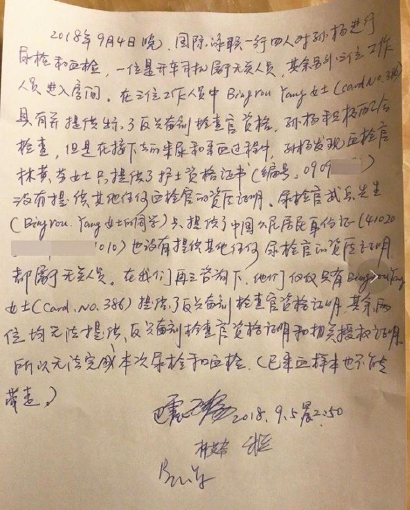 2018年9月4日晚，国际泳联一行四人对孙杨进行
尿检和血检，一位是开车司机属于无关人员，其余另外三位工作
人员进入房间。在三位工作人员中Bingrou Yang女士(card no.386)
具有并提供出示了反兴奋剂检查官资格，孙杨积极配合
检查，但是在接下去的采尿和采血过程中，孙杨发现血检官
女士只提供了护士资格证书（编号，0909
没有提供其他任何血检官的资质证明。尿检官 先生
（Bingrou. Yang女士的同学）只提供了中国公民居民身份证(41020
010) 也没有提供其他任何尿检官的资质证明
都属于无关人员。在我们再三咨询下，他们仅仅只有Bingrou Yang
女士(Card.No.386)提供了反兴奋剂检查官资格证明，其余两
位均无法提供，反兴奋剂检查官资格证明和相关授权证明。
所以无法完成本次尿检和血检。（已采血样本也不能
带走。）
2018.9.5晨2:50